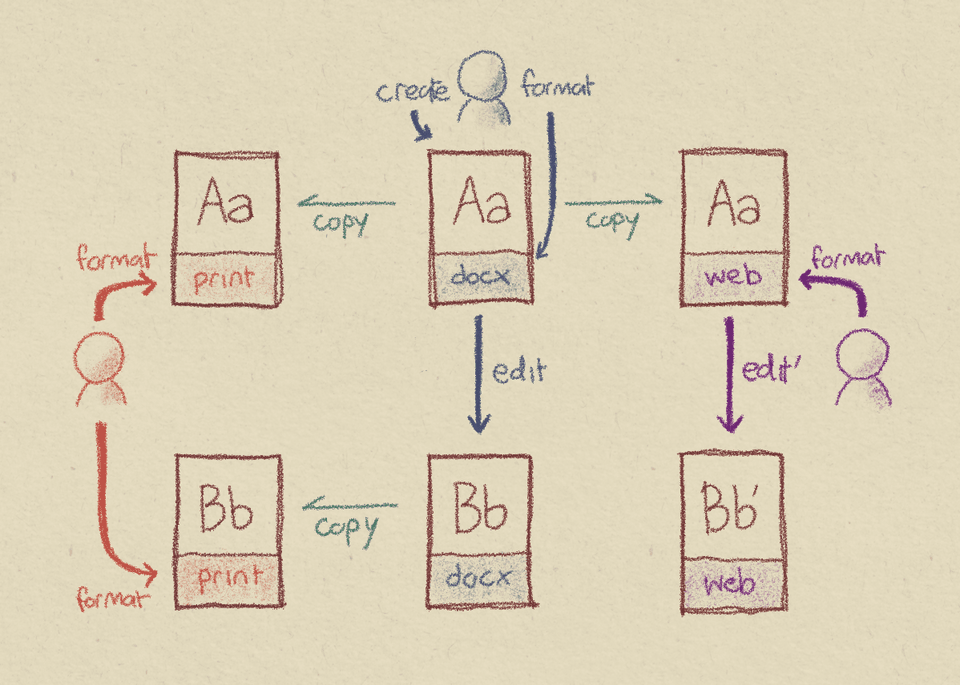 create
format
Aa
print
copy
Aa
docx
copy
Aa
web
format
format
edit
edit'
Bb
print
copy
Bb
docx
Bb'
web
format